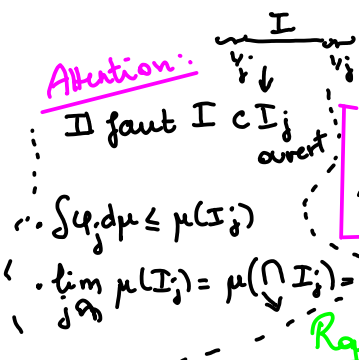 I
V_j V_j
Attention:
Il faut I ⊂ I_j
ouvert
∫φ_j dμ ≤ μ(I_j)
lim_{j↗∞} μ(I_j) = μ(∩ I_j) =
Rq